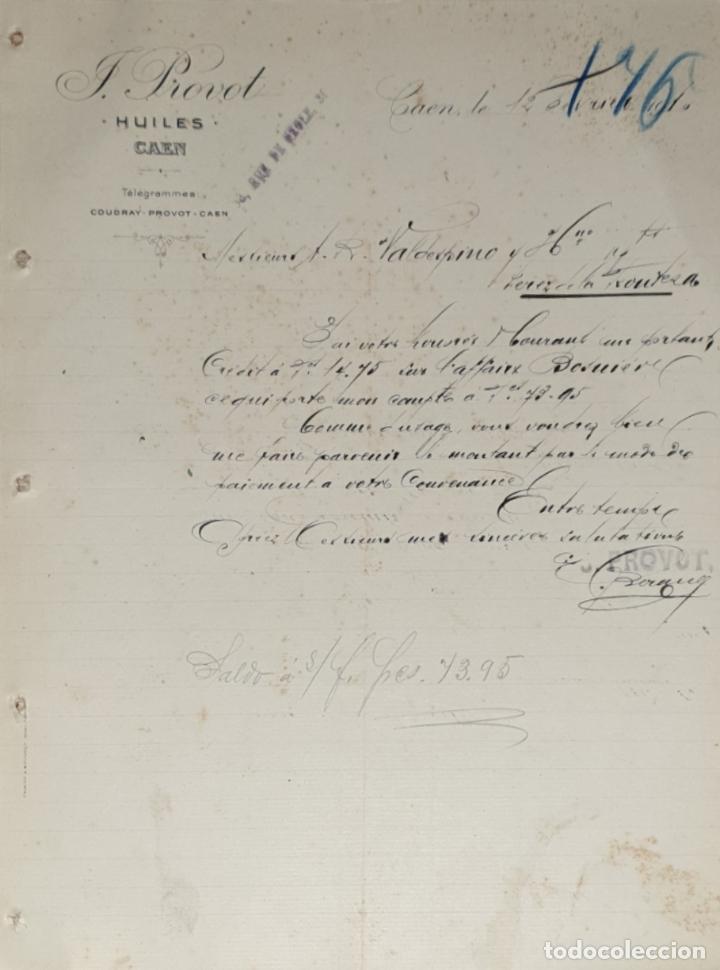 J. Provot
· HUILES ·
CAEN
Télégrammes:
COUDRAY-PROVOT-CAEN
RUE DE GEOLE, 31
176
Caen, le 12
Messieurs A. R. Valdespino y Hno
Jerez de la Frontera
J'ai votre honorée courant me portant
Crédit à 14.75 sur l'affaire Besnière
ce qui porte mon compte à 73.95
Comme d'usage, vous voudrez bien
me faire parvenir le montant par le mode de
paiement à votre Convenance
Entre temps
Messieurs mes sincères salutations
J. PROVOT,
Saldo á s/f. Pes. 73.95
todocoleccion